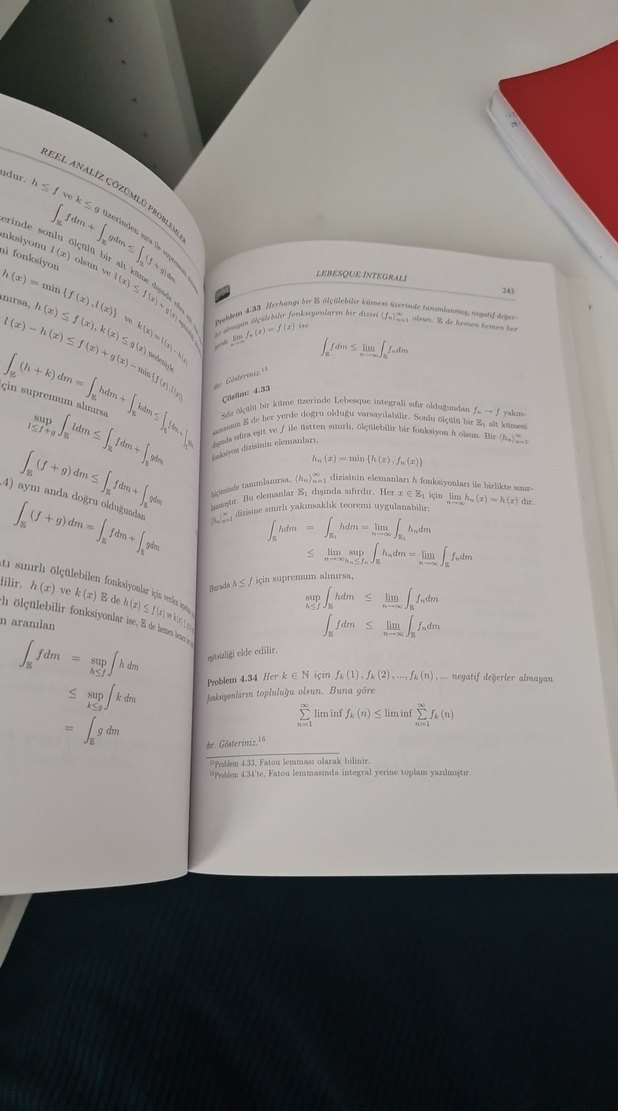 REEL ANALİZ ÇÖZÜMLÜ PROBLEMLER
udur. h ≤ f ve k ≤ g üzerinden sıra ile supremum
∫_E fdm + ∫_E gdm ≤ ∫_E (f + g) dm
zerinde sonlu ölçülü bir alt küme dışında sıfır
onksiyonu l (x) olsun ve l (x) ≤ f (x) + g (x)
ni fonksiyon
h (x) = min {f (x), l (x)} ve k (x) = l (x) − h (x)
anırsa, h (x) ≤ f (x), k (x) ≤ g (x) nedeniyle
l (x) − h (x) ≤ f (x) + g (x) − min {f (x), l (x)}
∫_E (h + k) dm = ∫_E hdm + ∫_E kdm ≤ ∫_E fdm + ∫_E
için supremum alınırsa
sup_{l≤f+g} ∫_E ldm ≤ ∫_E fdm + ∫_E gdm
∫_E (f + g) dm ≤ ∫_E fdm + ∫_E gdm
.4) aynı anda doğru olduğundan
∫_E (f + g) dm = ∫_E fdm + ∫_E gdm
atı sınırlı ölçülebilen fonksiyonlar için verilen
dilir. h (x) ve k (x) E de h (x) ≤ f (x) ve k (x) ≤
rlı ölçülebilir fonksiyonlar ise, E de hemen
n aranılan
∫_E fdm = sup_{h≤f} ∫ h dm
≤ sup_{k≤g} ∫ k dm
= ∫_E g dm
LEBESQUE İNTEGRALİ 243
Problem 4.33 Herhangi bir E ölçülebilir kümesi üzerinde tanımlanmış, negatif değer-
bir almayan ölçülebilir fonksiyonların bir dizisi (f_n)_{n=1}^∞ olsun. E de hemen hemen her
yerde lim_{n→∞} f_n (x) = f (x) ise
∫_E fdm ≤ lim_{n→∞} ∫_E f_n dm
dır. Gösteriniz.¹⁵
Çözüm: 4.33
Sıfır ölçülü bir küme üzerinde Lebesque integrali sıfır olduğundan f_n → f yakın-
samasının E de her yerde doğru olduğu varsayılabilir. Sonlu ölçülü bir E₁ alt kümesi
dışında sıfıra eşit ve f ile üstten sınırlı, ölçülebilir bir fonksiyon h olsun. Bir (h_n)_{n=1}^∞
fonksiyon dizisinin elemanları,
h_n (x) = min {h (x), f_n (x)}
biçiminde tanımlanırsa, (h_n)_{n=1}^∞ dizisinin elemanları h fonksiyonları ile birlikte sınır-
lanmıştır. Bu elemanlar E₁ dışında sıfırdır. Her x ∈ E₁ için lim_{n→∞} h_n (x) = h (x) dır.
(h_n)_{n=1}^∞ dizisine sınırlı yakınsaklık teoremi uygulanabilir:
∫_E hdm = ∫_{E₁} hdm = lim_{n→∞} ∫_{E₁} h_n dm
≤ lim_{n→∞} sup_{h_n≤f_n} ∫_E h_n dm = lim_{n→∞} ∫_E f_n dm
Burada h ≤ f için supremum alınırsa,
sup_{h≤f} ∫_E hdm ≤ lim_{n→∞} ∫_E f_n dm
∫_E fdm ≤ lim_{n→∞} ∫_E f_n dm
eşitsizliği elde edilir.
Problem 4.34 Her k ∈ N için f_k (1), f_k (2), ..., f_k (n), ... negatif değerler almayan
fonksiyonların topluluğu olsun. Buna göre
∑_{n=1}^∞ lim inf f_k (n) ≤ lim inf ∑_{n=1}^∞ f_k (n)
dır. Gösteriniz.¹⁶
¹⁵Problem 4.33, Fatou lemması olarak bilinir.
¹⁶Problem 4.34'te, Fatou lemmasında integral yerine toplam yazılmıştır.